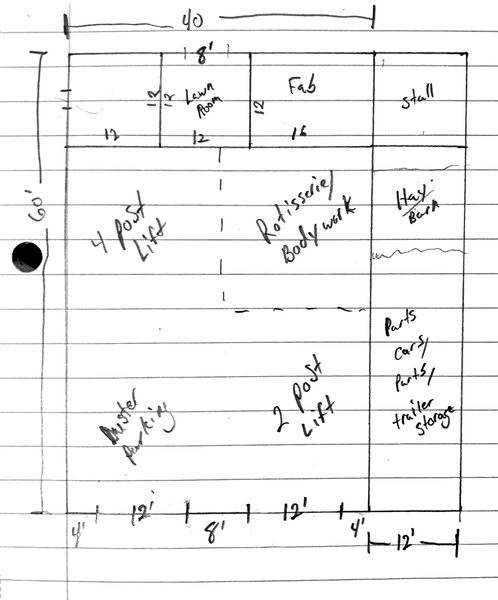 40
8'
12
12
Lawn
Room
12
Fab
12
12
16
Stall
60'
4 Post
Lift
Rotisserie/
Bodywork
Hay
Barn
Parts
cars/
Parts/
trailer
storage
2 Post
Lift
Duster
Parking
4'
12'
8'
12'
4'
12'